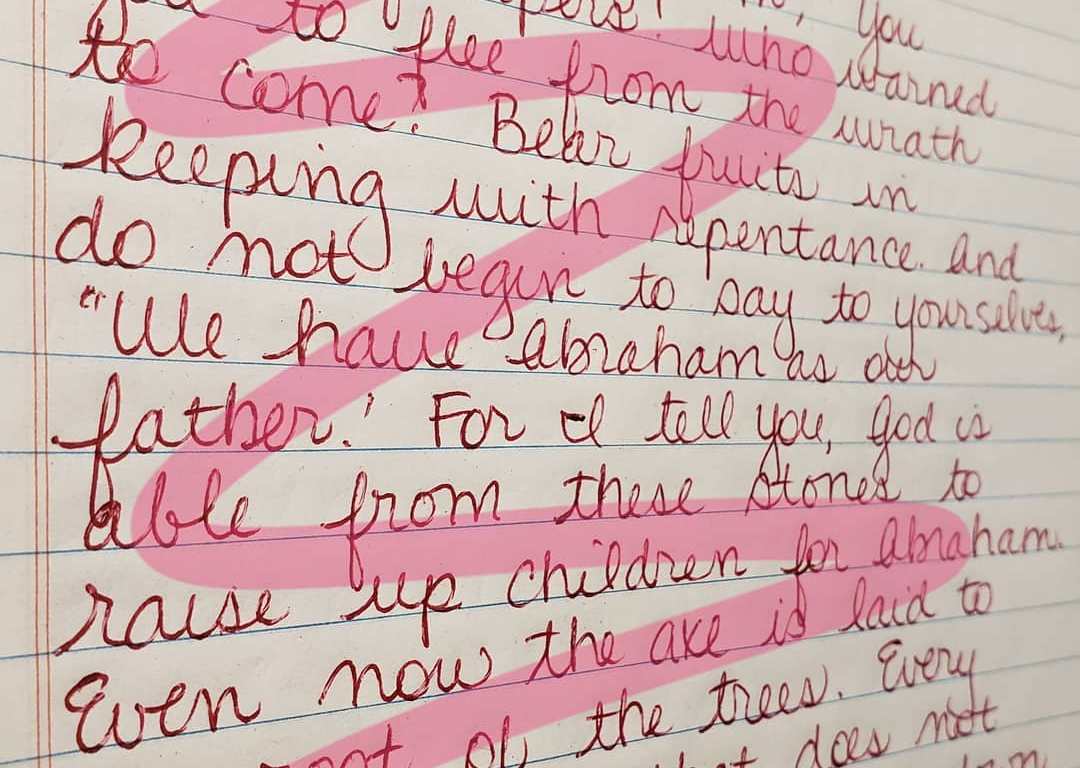 You
Who warned
to flee from the wrath
to come? Bear fruits in
keeping with repentance. And
do not begin to say to yourselves,
"We have Abraham as our
father.' For I tell you, God is
able from these stones to
raise up children for Abraham.
Even now the axe is laid to
root of the trees. Every
does not